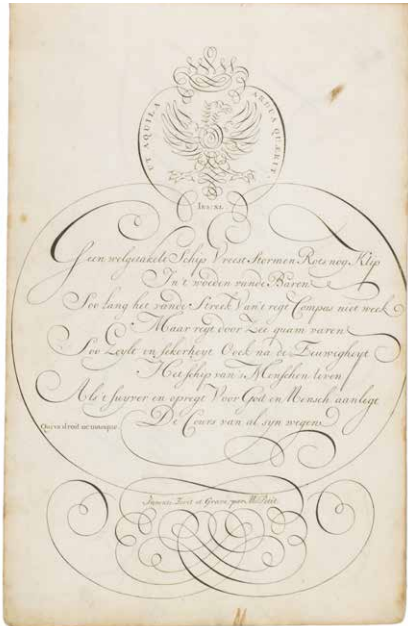 UT AQUILA ARDUA QUÆRIT.
IES: XL
Geen welgetakelt Schip Vreest Stormen Rots nog Klip
In't woeden vande Baren
Soo Lang het vande Streek Van't regt Compas niet week
Maar regt door Zee quam varen
Soo Zeylt en sekerheyt Oock na de Eeuwigheyt
Het schip van's Menschen leven
Als't suyver en opregt Voor God en Mensch aanlegt
De Cours van al syn wegen
Qui va droit ne manque.
Inventé Escrit et Gravé par M: Petit